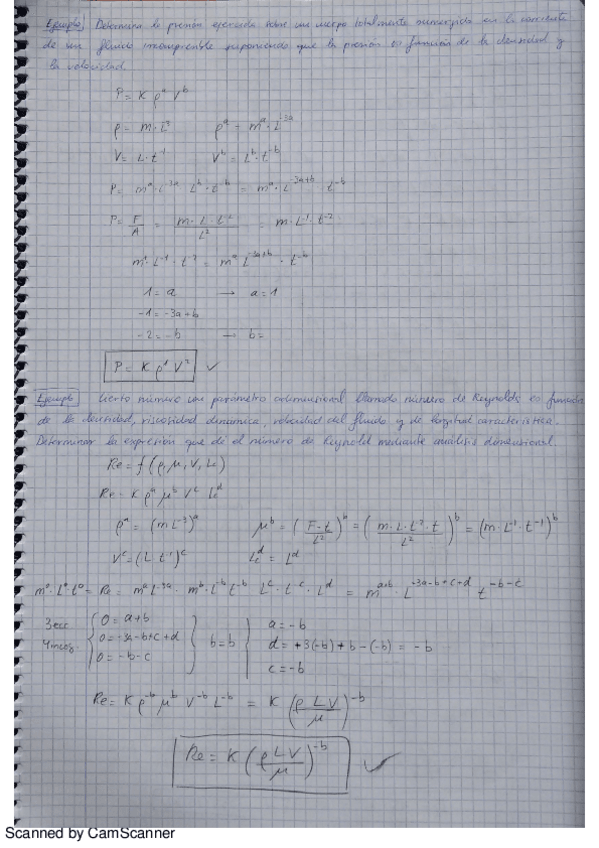 Ejemplo) Determina la presión ejercida sobre un cuerpo totalmente sumergido en la corriente
de un fluido incompresible suponiendo que la presión es función de la densidad y
la velocidad.
P = K ρ^a V^b
ρ = m·L^-3 ρ^a = m^a·L^-3a
V = L·t^-1 V^b = L^b·t^-b
P = m^a·L^-3a L^b·t^-b = m^a·L^-3a+b t^-b
P = F/A = m·L·t^-2/L^2 = m·L^-1·t^-2
m^1·L^-1·t^-2 = m^a L^-3a+b·t^-b
1 = a → a = 1
-1 = -3a+b
-2 = -b → b=
P = K ρ^1 V^2 ✓
Ejemplo Cierto número un parámetro adimensional llamado número de Reynolds es función
de la densidad, viscosidad dinámica, velocidad del fluido y de longitud característica.
Determinar la expresión que dé el número de Reynold mediante análisis dimensional.
Re = f(ρ, μ, V, Lc)
Re = K ρ^a μ^b V^c Lc^d
ρ^a = (m L^-3)^a μ^b = (F·t/L^2)^b = (m·L·t^-2·t/L^2)^b = (m·L^-1·t^-1)^b
V^c = (L t^-1)^c Lc^d = L^d
m^0·L^0·t^0 = Re = m^a L^-3a · m^b·L^-b t^-b L^c·t^-c·L^d = m^a+b·L^-3a-b+c+d t^-b-c
3 ecc 0 = a+b a = -b
4 incog. 0 = -3a-b+c+d b = b d = +3(-b)+b-(-b) = -b
0 = -b-c c = -b
Re = K ρ^-b μ^b V^-b L^-b = K (ρ L V/μ)^-b
Re = K (ρ L V/μ)^-b ✓
Scanned by CamScanner